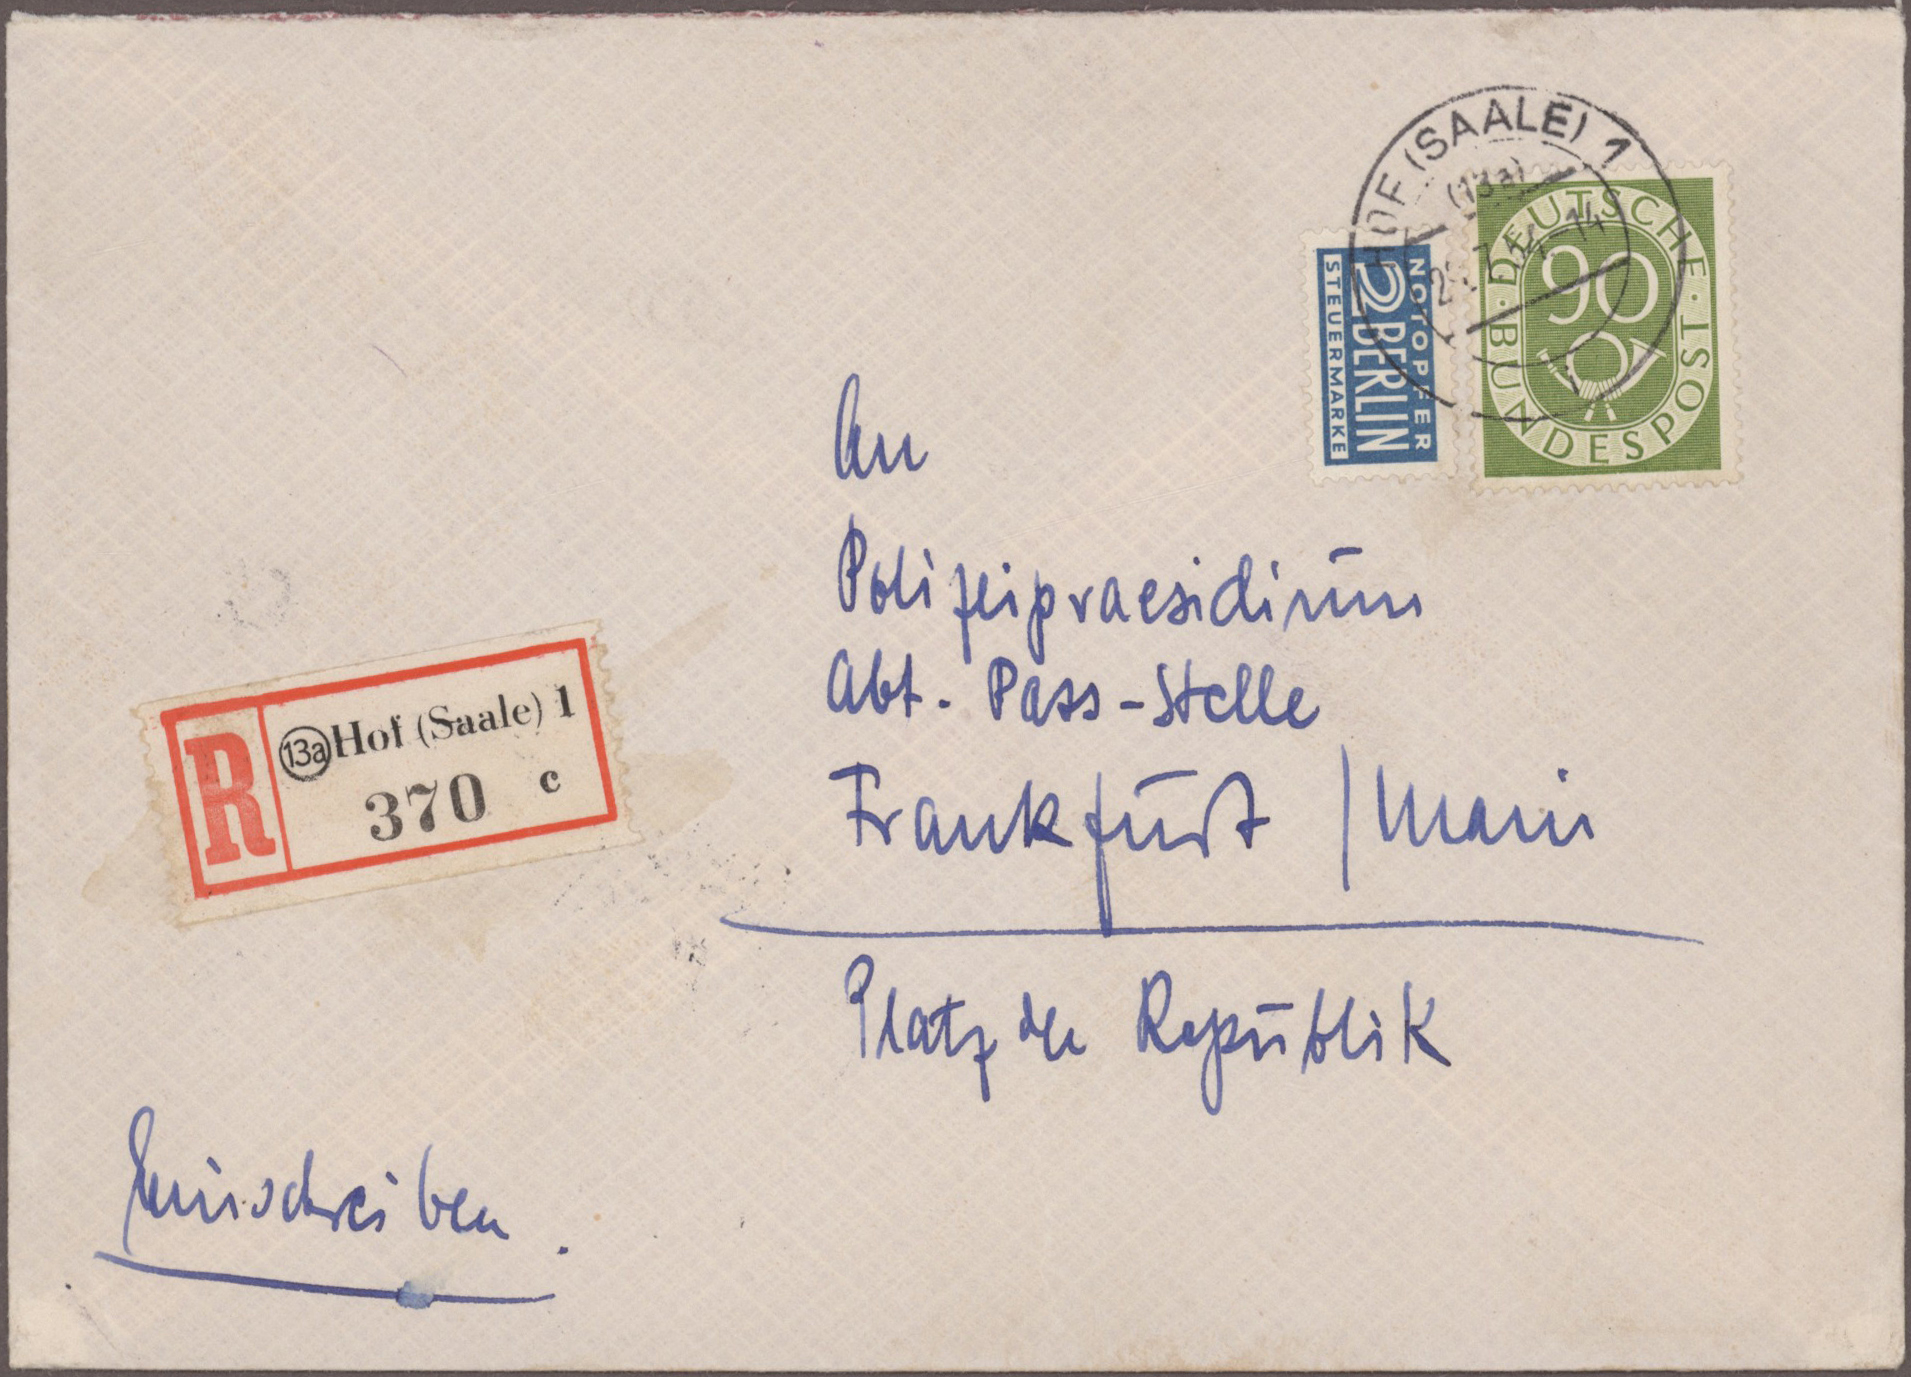 HOF (SAALE) 1
(13a)
7.54-14
NOTOPFER
2 BERLIN
STEUERMARKE
DEUTSCHE
90
BUNDESPOST
An
Polizeipraesidium
Abt. Pass-Stelle
Frankfurt / Main
Platz der Republik
R
13a Hof (Saale) 1
370 c
Einschreiben.